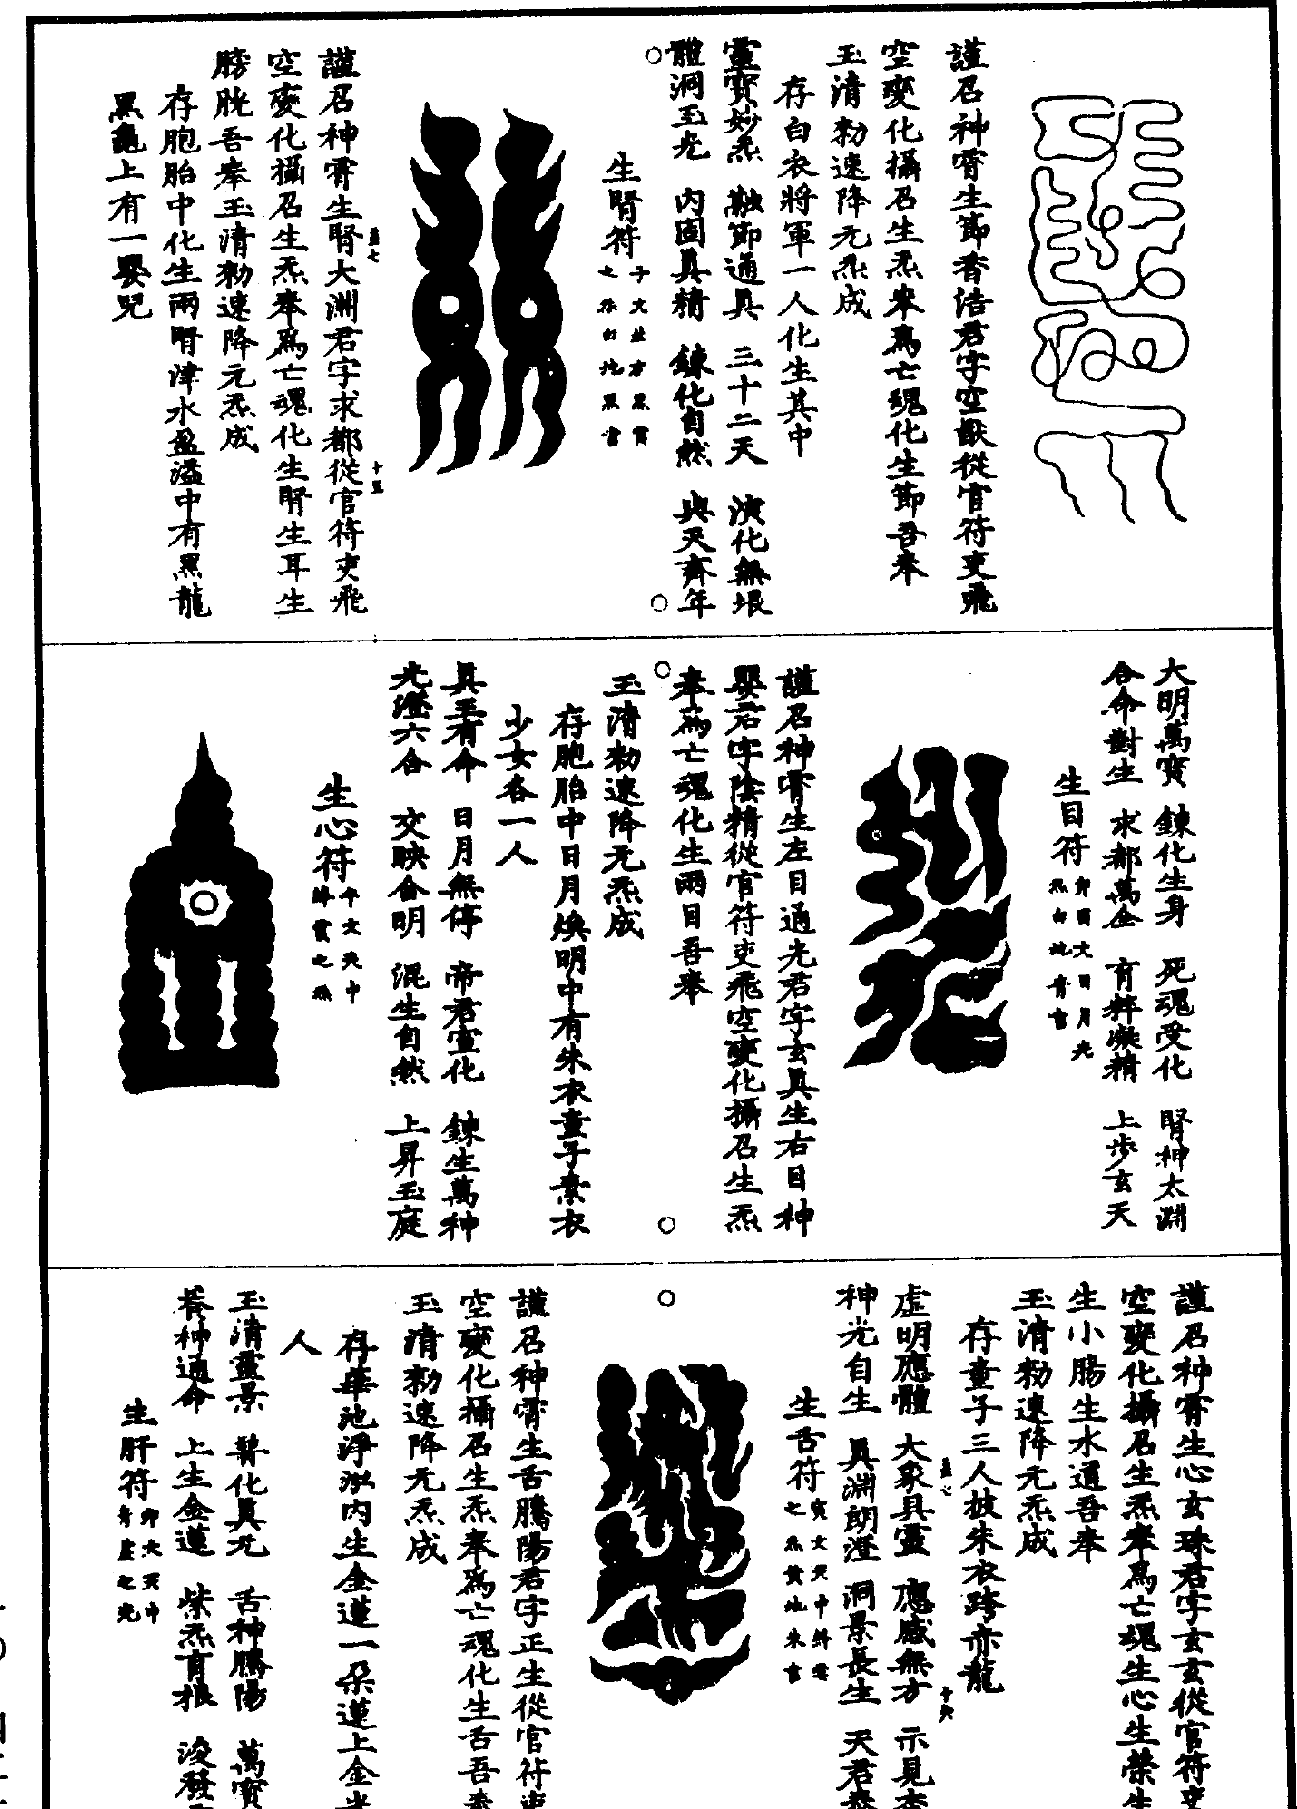 謹召神霄生節香浩君字空猷從官符吏飛
空變化攝召生炁來爲亡魂化生節吾奉
玉清勑速降元炁成
存白衣將軍一人化生其中
靈寶妙炁 融節通真 三十二天 演化無垠
體洞玉光 內固真精 鍊化自然 與天齊年
生腎符
謹召神霄生腎大淵君字求都從官符吏飛
空變化攝召生炁奉爲亡魂化生腎生耳生
膀胱吾奉玉清勑速降元炁成
存胞胎中化生兩腎津水盈溢中有黑龍
黑龜上有一嬰兒
大明萬寶 鍊化生身 死魂受化 腎神太淵
合命對生 求都萬全 育粹凝精 上步玄天
生目符
謹召神霄生左目通光君字玄真生右目神
嬰君字陰精從官符吏飛空變化攝召生炁
奉爲亡魂化生兩目吾奉
玉清勑速降元炁成
存胞胎中日月煥明中有朱衣童子素衣
少女各一人
真王有命 日月無停 帝君宣化 鍊生萬神
光澄六合 交映合明 混生自然 上昇玉庭
生心符
謹召神霄生心玄珠君字玄玄從官符吏
空變化攝召生炁奉爲亡魂生心生榮生
生小腸生水道吾奉
玉清勑速降元炁成
存童子三人披朱衣跨赤龍
虛明應體 大象具靈 應感無方 示見
神光自生 真淵朗澄 洞景長生 天君
生舌符
謹召神霄生舌騰陽君字正生從官符吏
空變化攝召生炁奉爲亡魂化生舌吾奉
玉清勑速降元炁成
存華池淨泓內生金蓮一朵蓮上金光
人
玉清靈景 化真元 舌神騰陽 萬寶
養神通命 上生金蓮 柴炁育根
生肝符